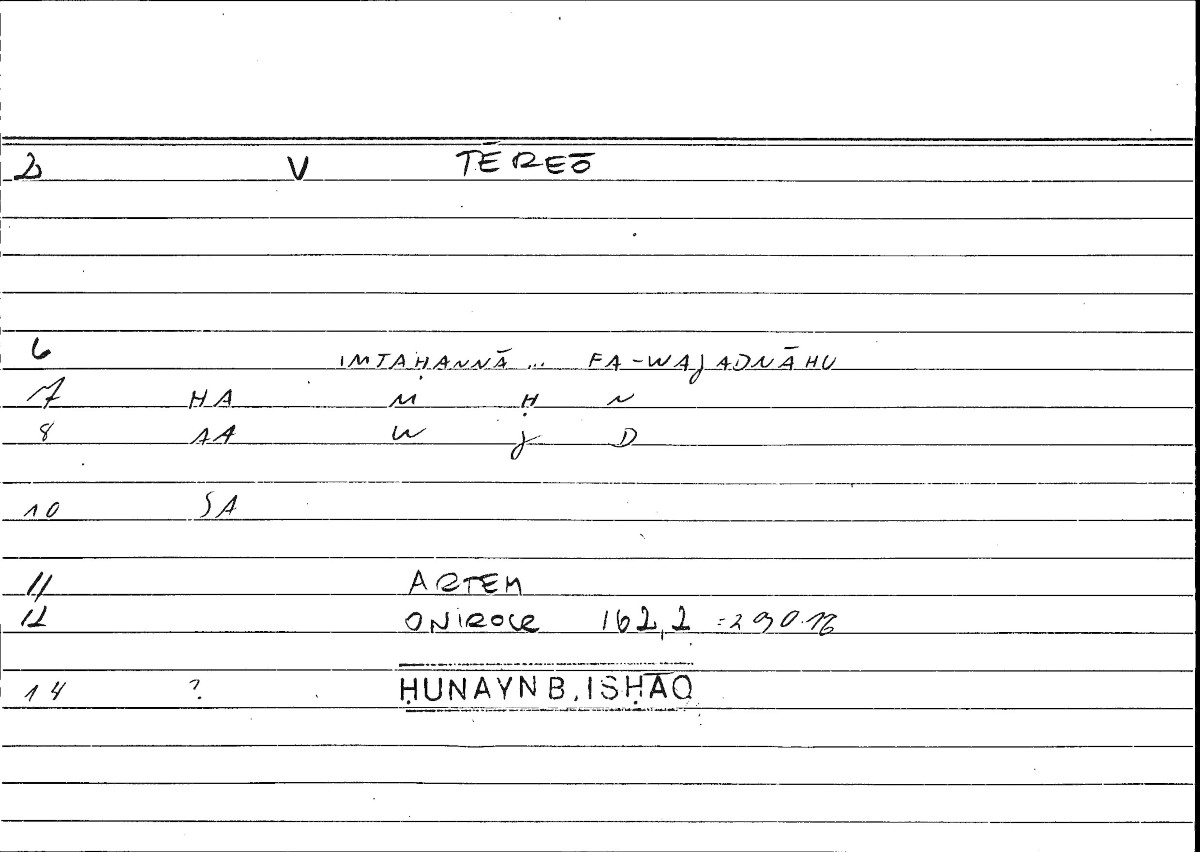 2 V TĒREŌ
6 IMTAḤANNĀ ... FA-WAJADNĀHU
7 HA M Ḥ N
8 AA W J D
10 SA
11 ARTEM
12 ONIROCR 162,2 =290.18
14 ? ḤUNAYN B. ISḤĀQ